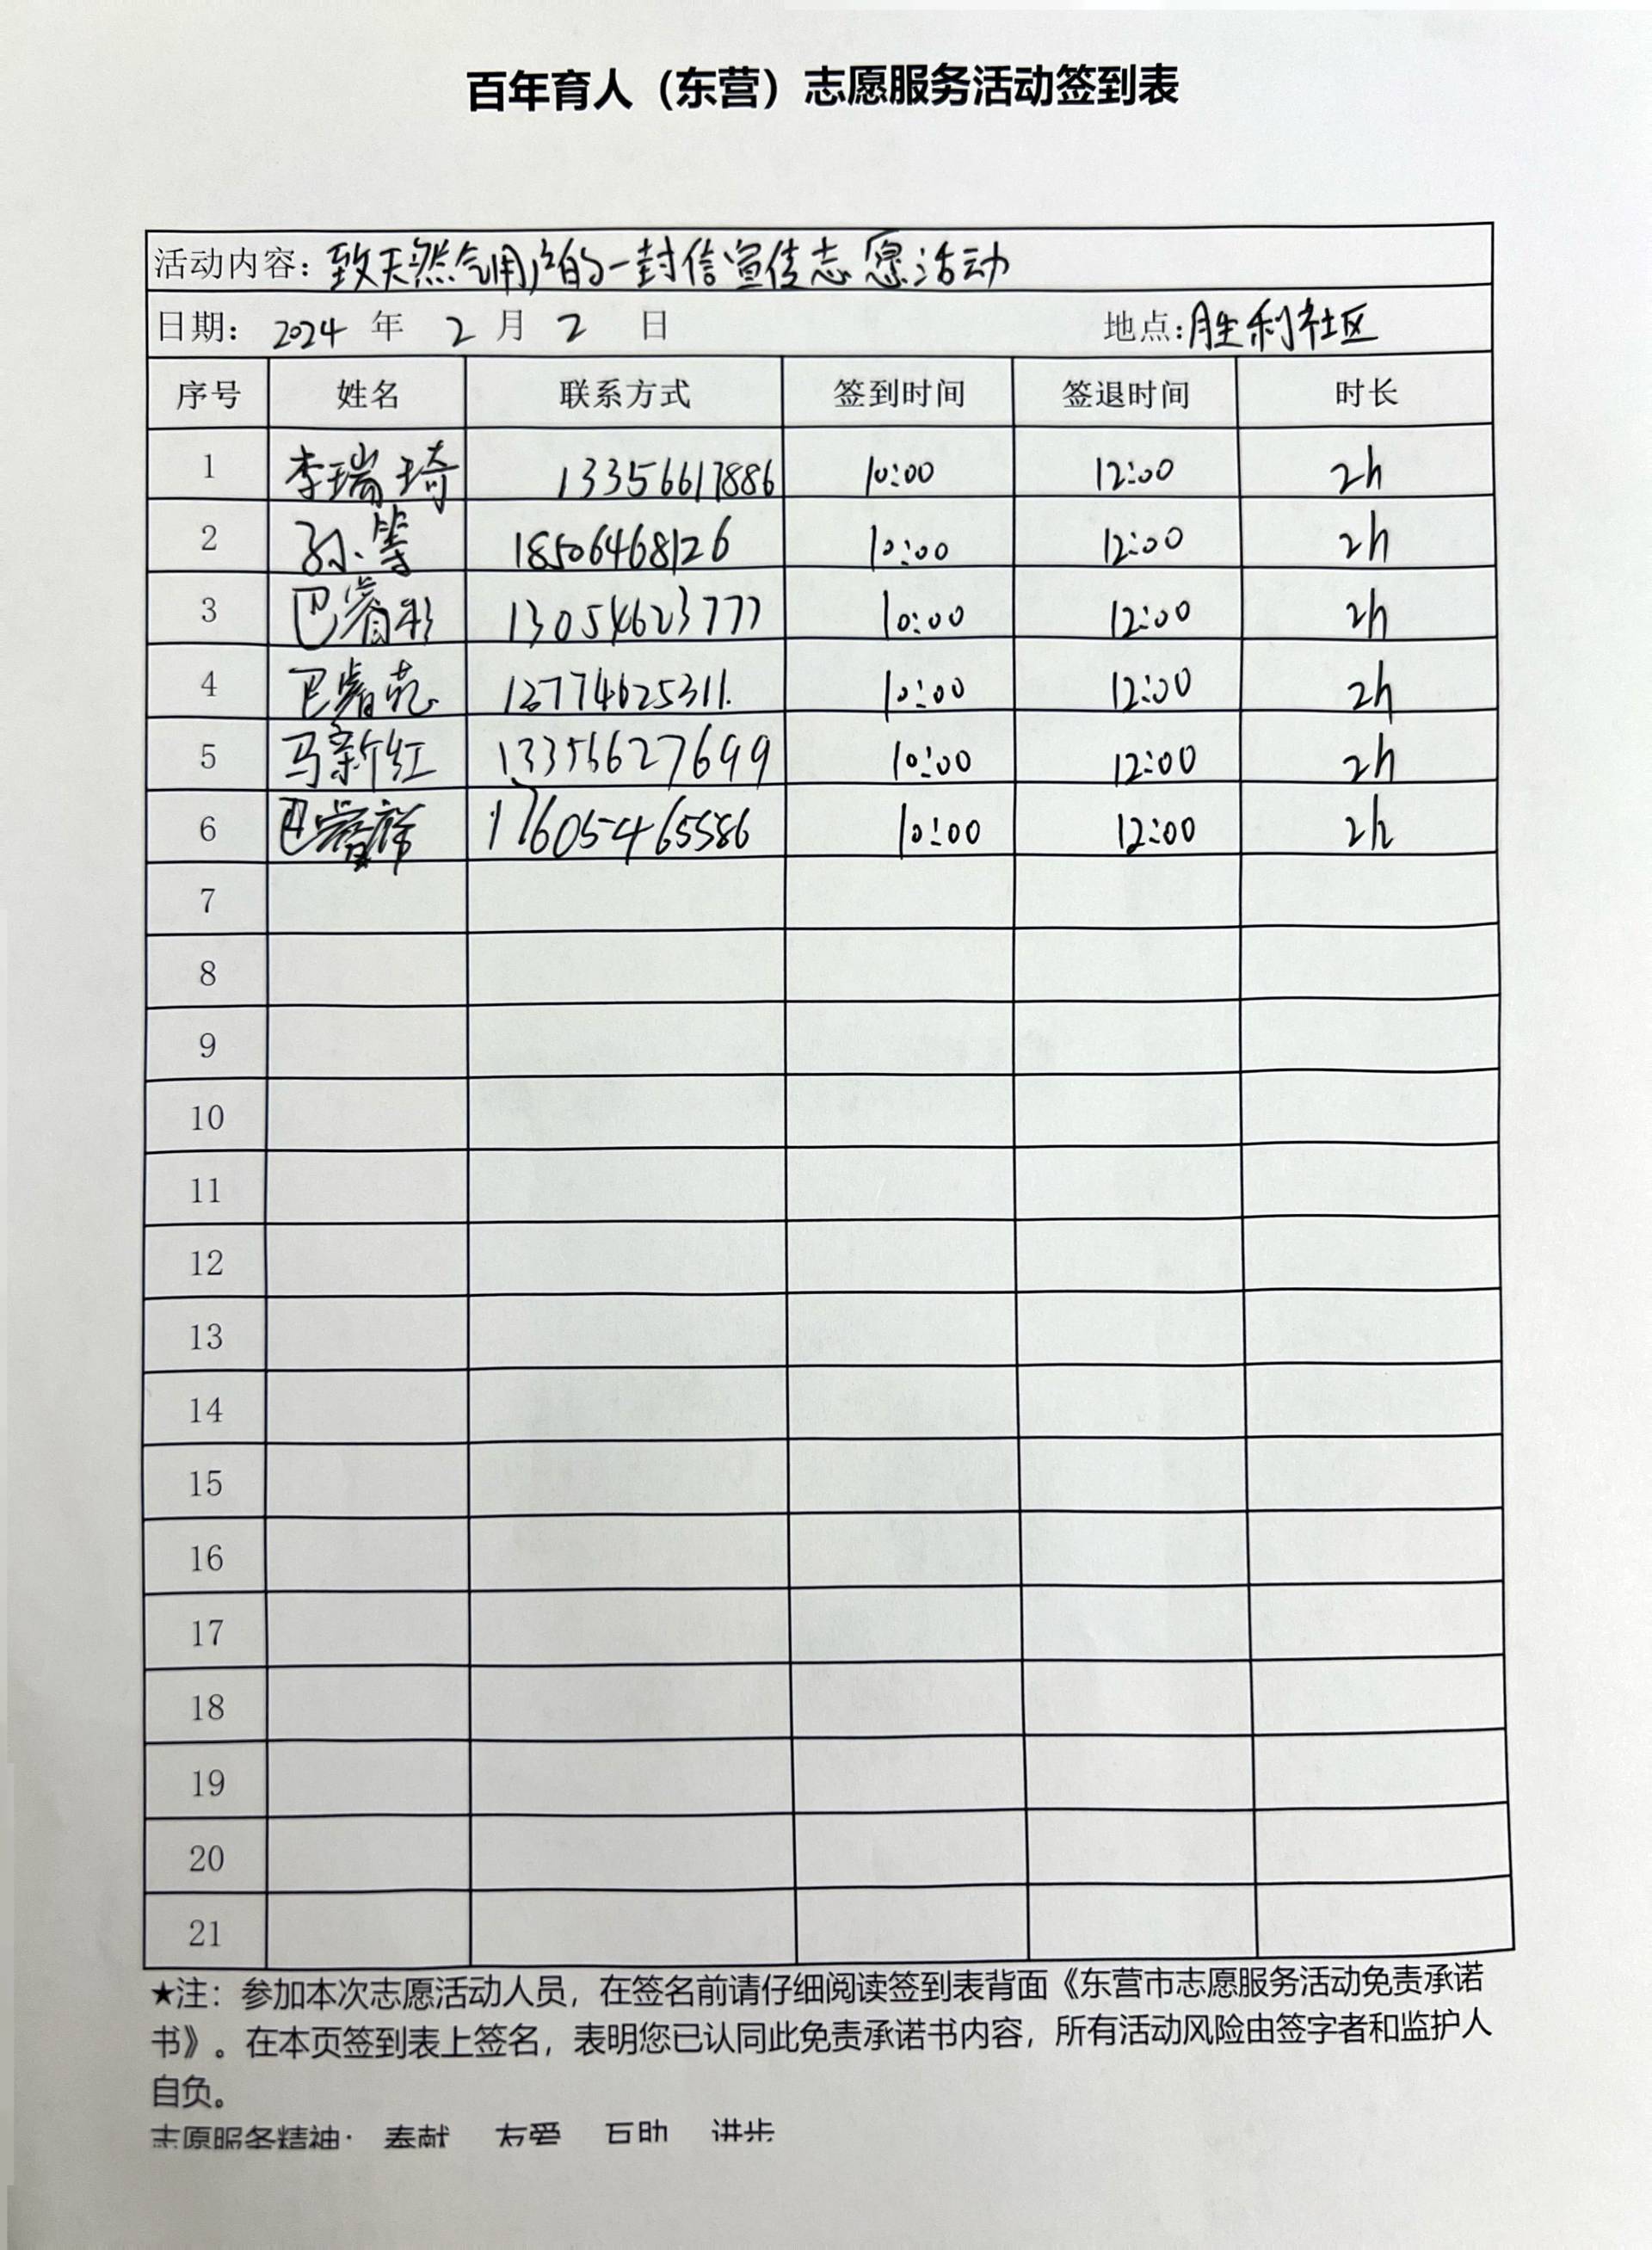 百年育人（东营）志愿服务活动签到表
活动内容：致天然气用户的一封信宣传志愿活动
日期：2024年2月2日 地点：胜利社区
序号 姓名 联系方式 签到时间 签退时间 时长
1 李瑞琦 13356617886 10:00 12:00 2h
2 孙 18506468126 10:00 12:00 2h
3 巴睿彤 13054623777 10:00 12:00 2h
4 巴睿 10:00 12:00 2h
5 马新红 13356627699 10:00 12:00 2h
6 巴睿 17605465586 10:00 12:00 2h
7
8
9
10
11
12
13
14
15
16
17
18
19
20
21
★注：参加本次志愿活动人员，在签名前请仔细阅读签到表背面《东营市志愿服务活动免责承诺
书》。在本页签到表上签名，表明您已认同此免责承诺书内容，所有活动风险由签字者和监护人
自负。
志愿服务精神： 奉献 友爱 互助 进步